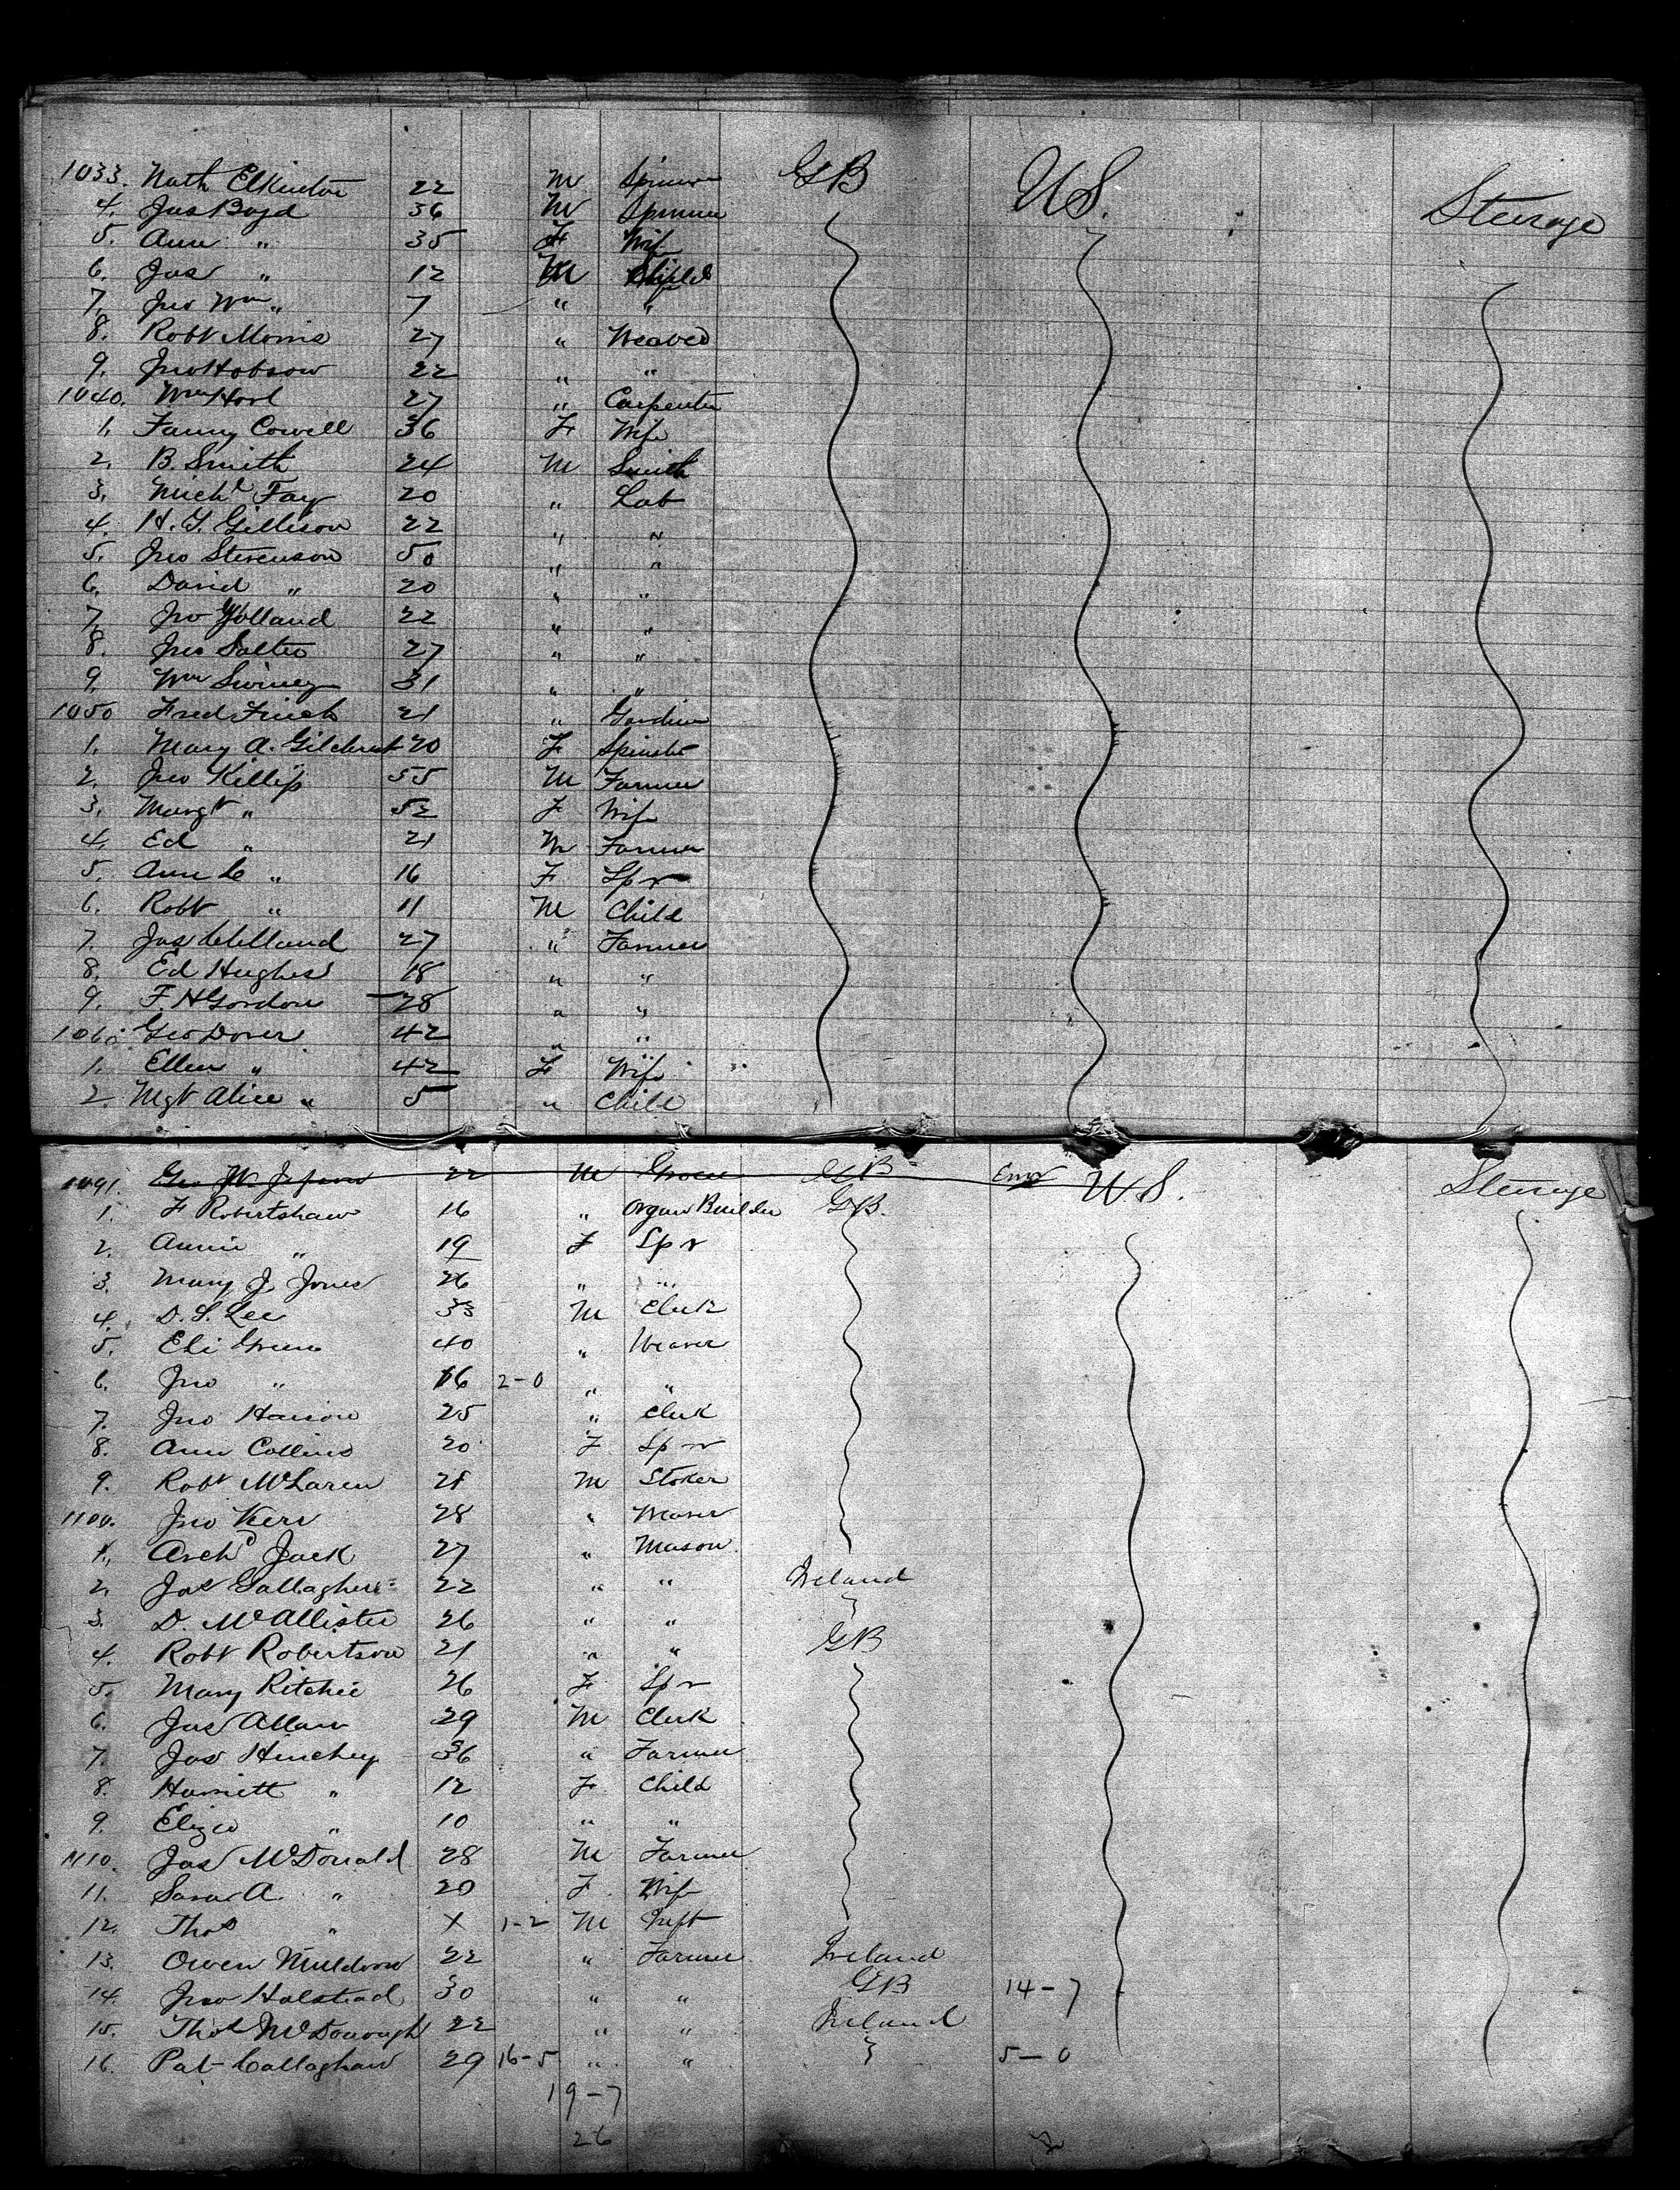 1033. Nath Elkinton 22 M Spinner GB US. Steerage
4. Jas Boyd 36 M Spinner
5. Ann " 35 F Wife
6. Jas " 12 M Child
7. Jno Wm " 7 " "
8. Robt Morris 27 " Weaver
9. Jno Hobson 22 " "
1040. Wm 27 " Carpenter
1. Fanny Cowell 36 F Wife
2. B. Smith 24 M Smith
3. Michl Fay 20 " Lab
4. H. Y. Gillison 22 " "
5. Jno Stevenson 50 " "
6. David " 20 " "
7. Jno Holland 22 " "
8. Jno Salter 27 " "
9. Wm Swiney 31 " "
1050 Fred Finch 21 " Gardiner
1. Mary A. Gilchrist 20 F Spinster
2. Jno Killip 55 M Farmer
3. Margt " 52 F Wife
4. Ed " 21 M Farmer
5. Ann C " 16 F Spr
6. Robt " 11 M Child
7. Jas Clelland 27 " Farmer
8. Ed Hughes 18 " "
9. F. H Gordon 28 " "
1060. Geo Dover 42 " "
1. Ellen " 42 F Wife
2. Mgt Alice " 5 " Child
1091. Geo W. Jepson 22 M Grocer GB Error US. Steerage
1. F Robertshaw 16 " Organ Builder GB.
2. Annie " 19 F Spr
3. Mary J. Jones 26 " "
4. D. L. Lee 33 M Clerk
5. Eli Green 40 " Weaver
6. Jno " 16 2-0 " "
7. Jno 25 " Clerk
8. Ann Collins 20 F Spr
9. Robt McLaren 21 M Stoker
1100. Jno Kerr 28 " Weaver
1. Archd Jack 27 " Mason
2. Jas Gallagher 22 " " Ireland
3. D. McAllister 26 " " "
4. Robt Robertson 21 " " GB
5. Mary Ritchie 26 F Spr
6. Jas Allan 29 M Clerk
7. Jas Hinchey 36 " Farmer
8. Harriett " 12 F Child
9. Eliza " 10 " "
1110. Jas McDonald 28 M Farmer
11. Sara A " 20 F Wife
12. Thos " X 1-2 M Inft
13. Owen Muldoon 22 " Farmer Ireland
14. Jno Halstead 30 " " GB 14-7
15. Thos McDonough 22 " " Ireland
16. Pat Callaghan 29 16-5 " " " 5-0
19-7
26